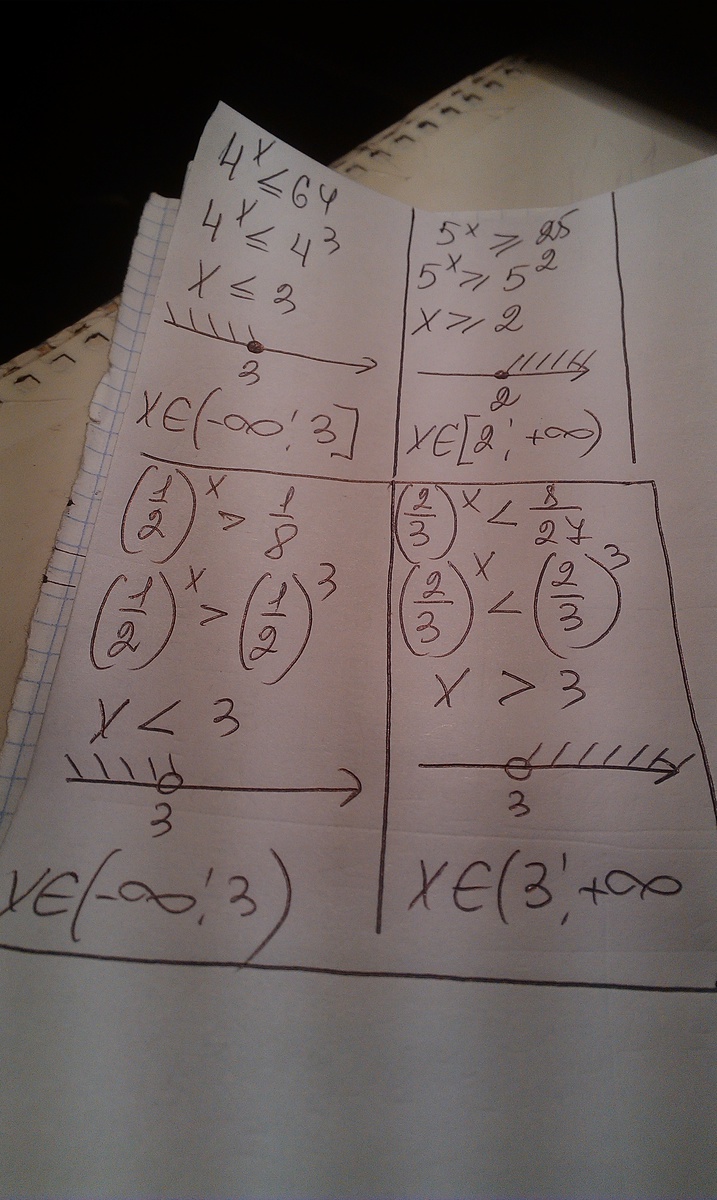 4^x ≤ 64
4^x ≤ 4^3
x ≤ 3
3
x∈(-∞; 3]
5^x ≥ 25
5^x ≥ 5^2
x ≥ 2
2
x∈[2; +∞)
(1/2)^x > 1/8
(1/2)^x > (1/2)^3
x < 3
3
x∈(-∞; 3)
(2/3)^x < 8/27
(2/3)^x < (2/3)^3
x > 3
3
x∈(3; +∞